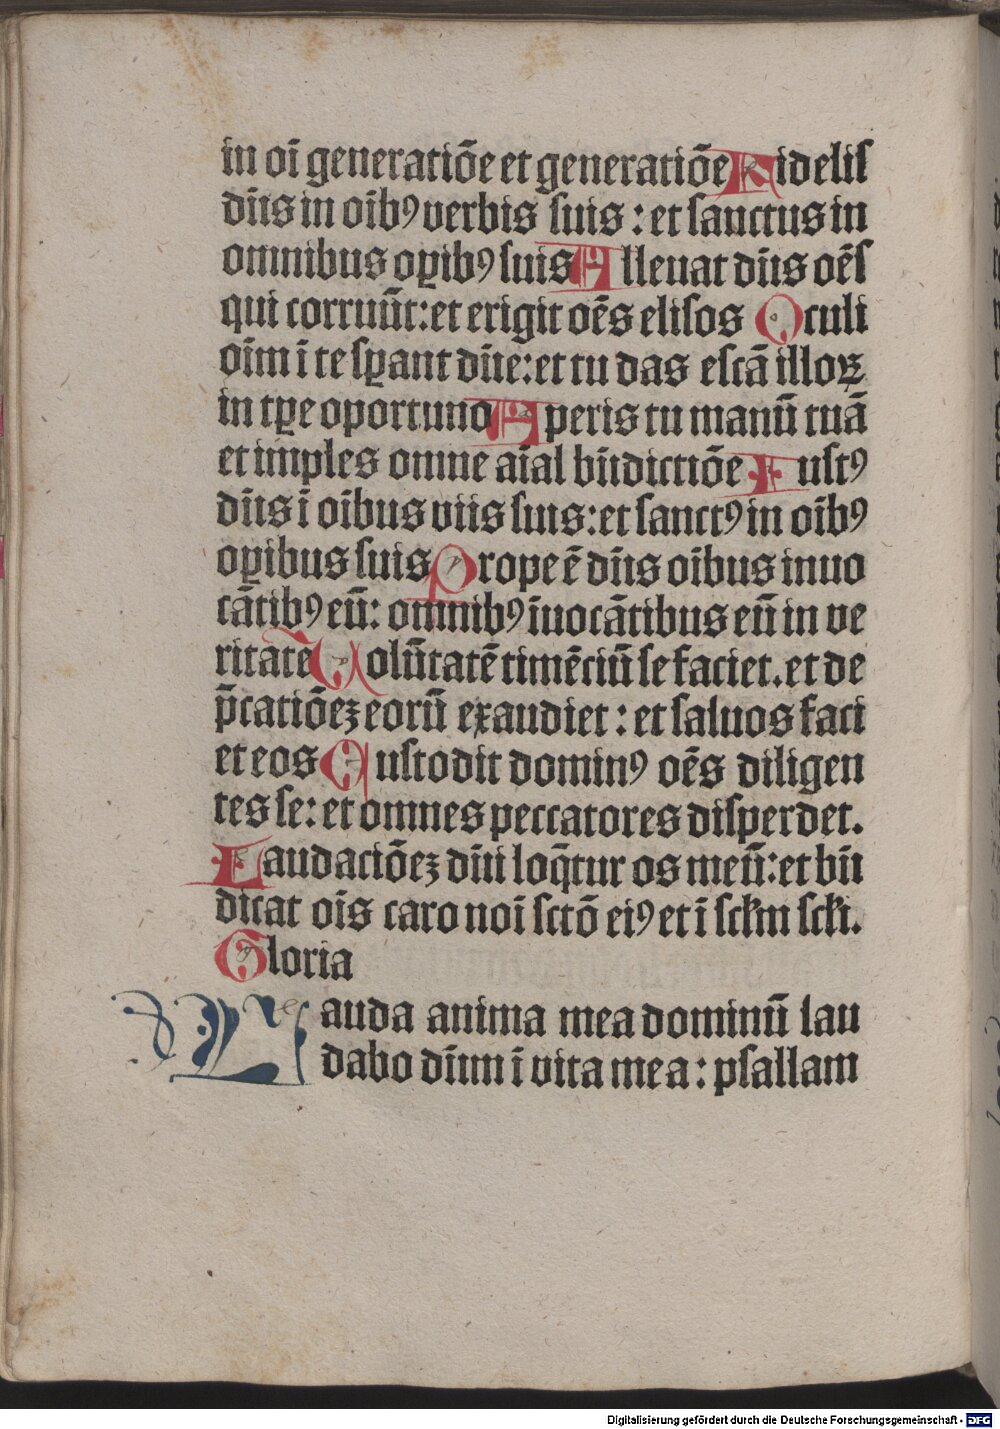 in oī generatiōe et generatiōe Fidelis
dn̄s in oīb⁹ verbis suis : et sanctus in
omnibus oꝑib⁹ suis Alleuat dn̄s oēs
qui corruūt: et erigit oēs elisos Oculi
oīm ī te sꝑant dn̄e: et tu das escā illoꝝ
in tꝑe oportuno Aperis tu manū tuā
et imples omne aīal bn̄dictiōe Iust⁹
dn̄s ī oībus viis suis: et sanct⁹ in oīb⁹
oꝑibus suis Prope ē dn̄s oībus inuo
cātib⁹ eū: omnib⁹ īuocātibus eū in ve
ritate Volūtatē timēciū se faciet. et de
p̄catiōeꝫ eorū exaudiet : et saluos faci
et eos Custodit domin⁹ oēs diligen
tes se: et omnes peccatores disperdet.
Laudaciōeꝫ dn̄i loq̄tur os meū: et bn̄
dicat oīs caro noī sctō ei⁹ et ī sclm scli.
Gloria
Lauda anima mea dominū lau
dabo dn̄m ī vita mea : psallam
Digitalisierung gefördert durch die Deutsche Forschungsgemeinschaft - DFG